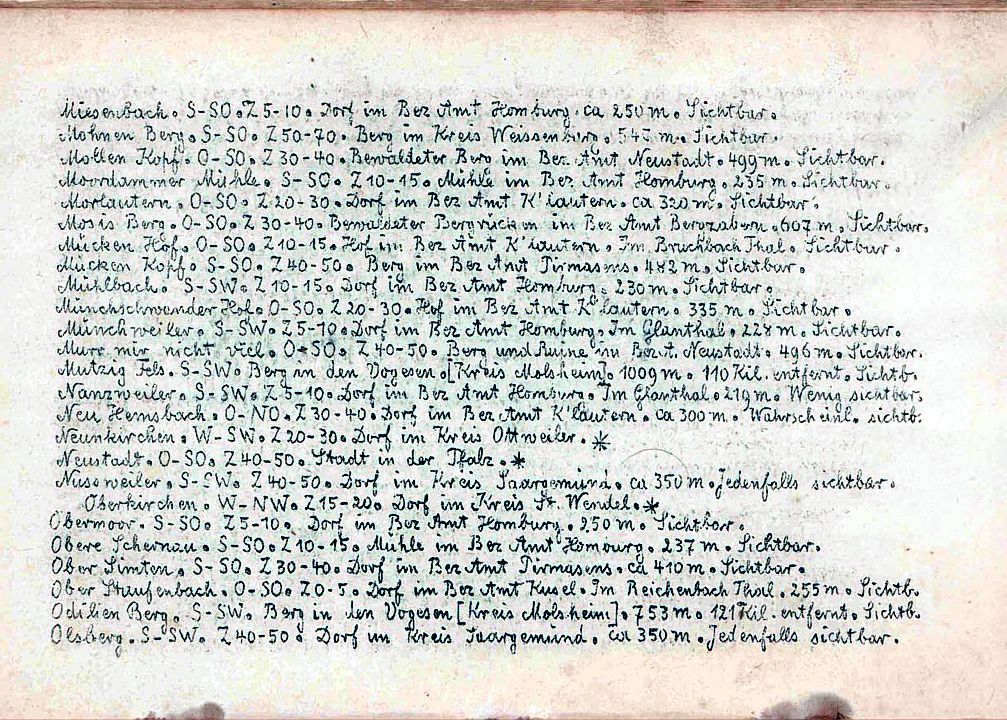 Miesenbach. S-SO. Z 5-10. Dorf im Bez Amt Homburg. ca 250 m. Sichtbar.
Mohnen Berg. S-SO. Z 50-70. Berg im Kreis Weissenburg. 547 m. Sichtbar.
Mollen Kopf. O-SO. Z 30-40. Bewaldeter Berg im Bez. Amt Neustadt. 499 m. Sichtbar.
Moordammer Mühle. S-SO. Z 10-15. Mühle im Bez Amt Homburg. 235 m. Sichtbar.
Morlautern. O-SO. Z 20-30. Dorf im Bez Amt K'lautern. ca 320 m. Sichtbar.
Mosis Berg. O-SO. Z 30-40. Bewaldeter Bergrücken im Bez Amt Bergzabern. 607 m. Sichtbar.
Mücken Hof. O-SO. Z 10-15. Hof im Bez Amt K'lautern. Im Bruchbach Thal. Sichtbar.
Mücken Kopf. S-SO. Z 40-50. Berg im Bez Amt Pirmasens. 482 m. Sichtbar.
Mühlbach. S-SW. Z 10-15. Dorf im Bez Amt Homburg. 230 m. Sichtbar.
Münchschwander Hof. O-SO. Z 20-30. Hof im Bez Amt K'lautern. 335 m. Sichtbar.
Münchweiler. S-SW. Z 5-10. Dorf im Bez Amt Homburg. Im Glanthal. 228 m. Sichtbar.
Murr mir nicht viel. O-SO. Z 40-50. Berg und Ruine im Bez. A. Neustadt. 496 m. Sichtbar.
Mutzig Fels. S-SW. Berg in den Vogesen. [Kreis Molsheim]. 1009 m. 110 Kil. entfernt. Sichtb.
Nanzweiler. S-SW. Z 5-10. Dorf im Bez Amt Homburg. Im Glanthal. 219 m. Wenig sichtbar.
Neu Hemsbach. O-NO. Z 30-40. Dorf im Bez Amt K'lautern. ca 300 m. Wahrscheinl. sichtb.
Neunkirchen. W-SW. Z 20-30. Dorf im Kreis Ottweiler. *
Neustadt. O-SO. Z 40-50. Stadt in der Pfalz. *
Nussweiler. S-SW. Z 40-50. Dorf im Kreis Saargemünd. ca 350 m. Jedenfalls sichtbar.
Oberkirchen. W-NW. Z 15-20. Dorf im Kreis St. Wendel. *
Obermoor. S-SO. Z 5-10. Dorf im Bez Amt Homburg. 250 m. Sichtbar.
Obere Schernau. S-SO. Z 10-15. Mühle im Bez Amt Homburg. 237 m. Sichtbar.
Ober Simten. S-SO. Z 30-40. Dorf im Bez Amt Pirmasens. ca 410 m. Sichtbar.
Ober Staufenbach. O-SO. Z 0-5. Dorf im Bez Amt Kusel. Im Reichenbach Thal. 255 m. Sichtb.
Odilien Berg. S-SW. Berg in den Vogesen [Kreis Molsheim]. 753 m. 121 Kil. entfernt. Sichtb.
Olsberg. S-SW. Z 40-50. Dorf im Kreis Saargemünd. ca 350 m. Jedenfalls sichtbar.